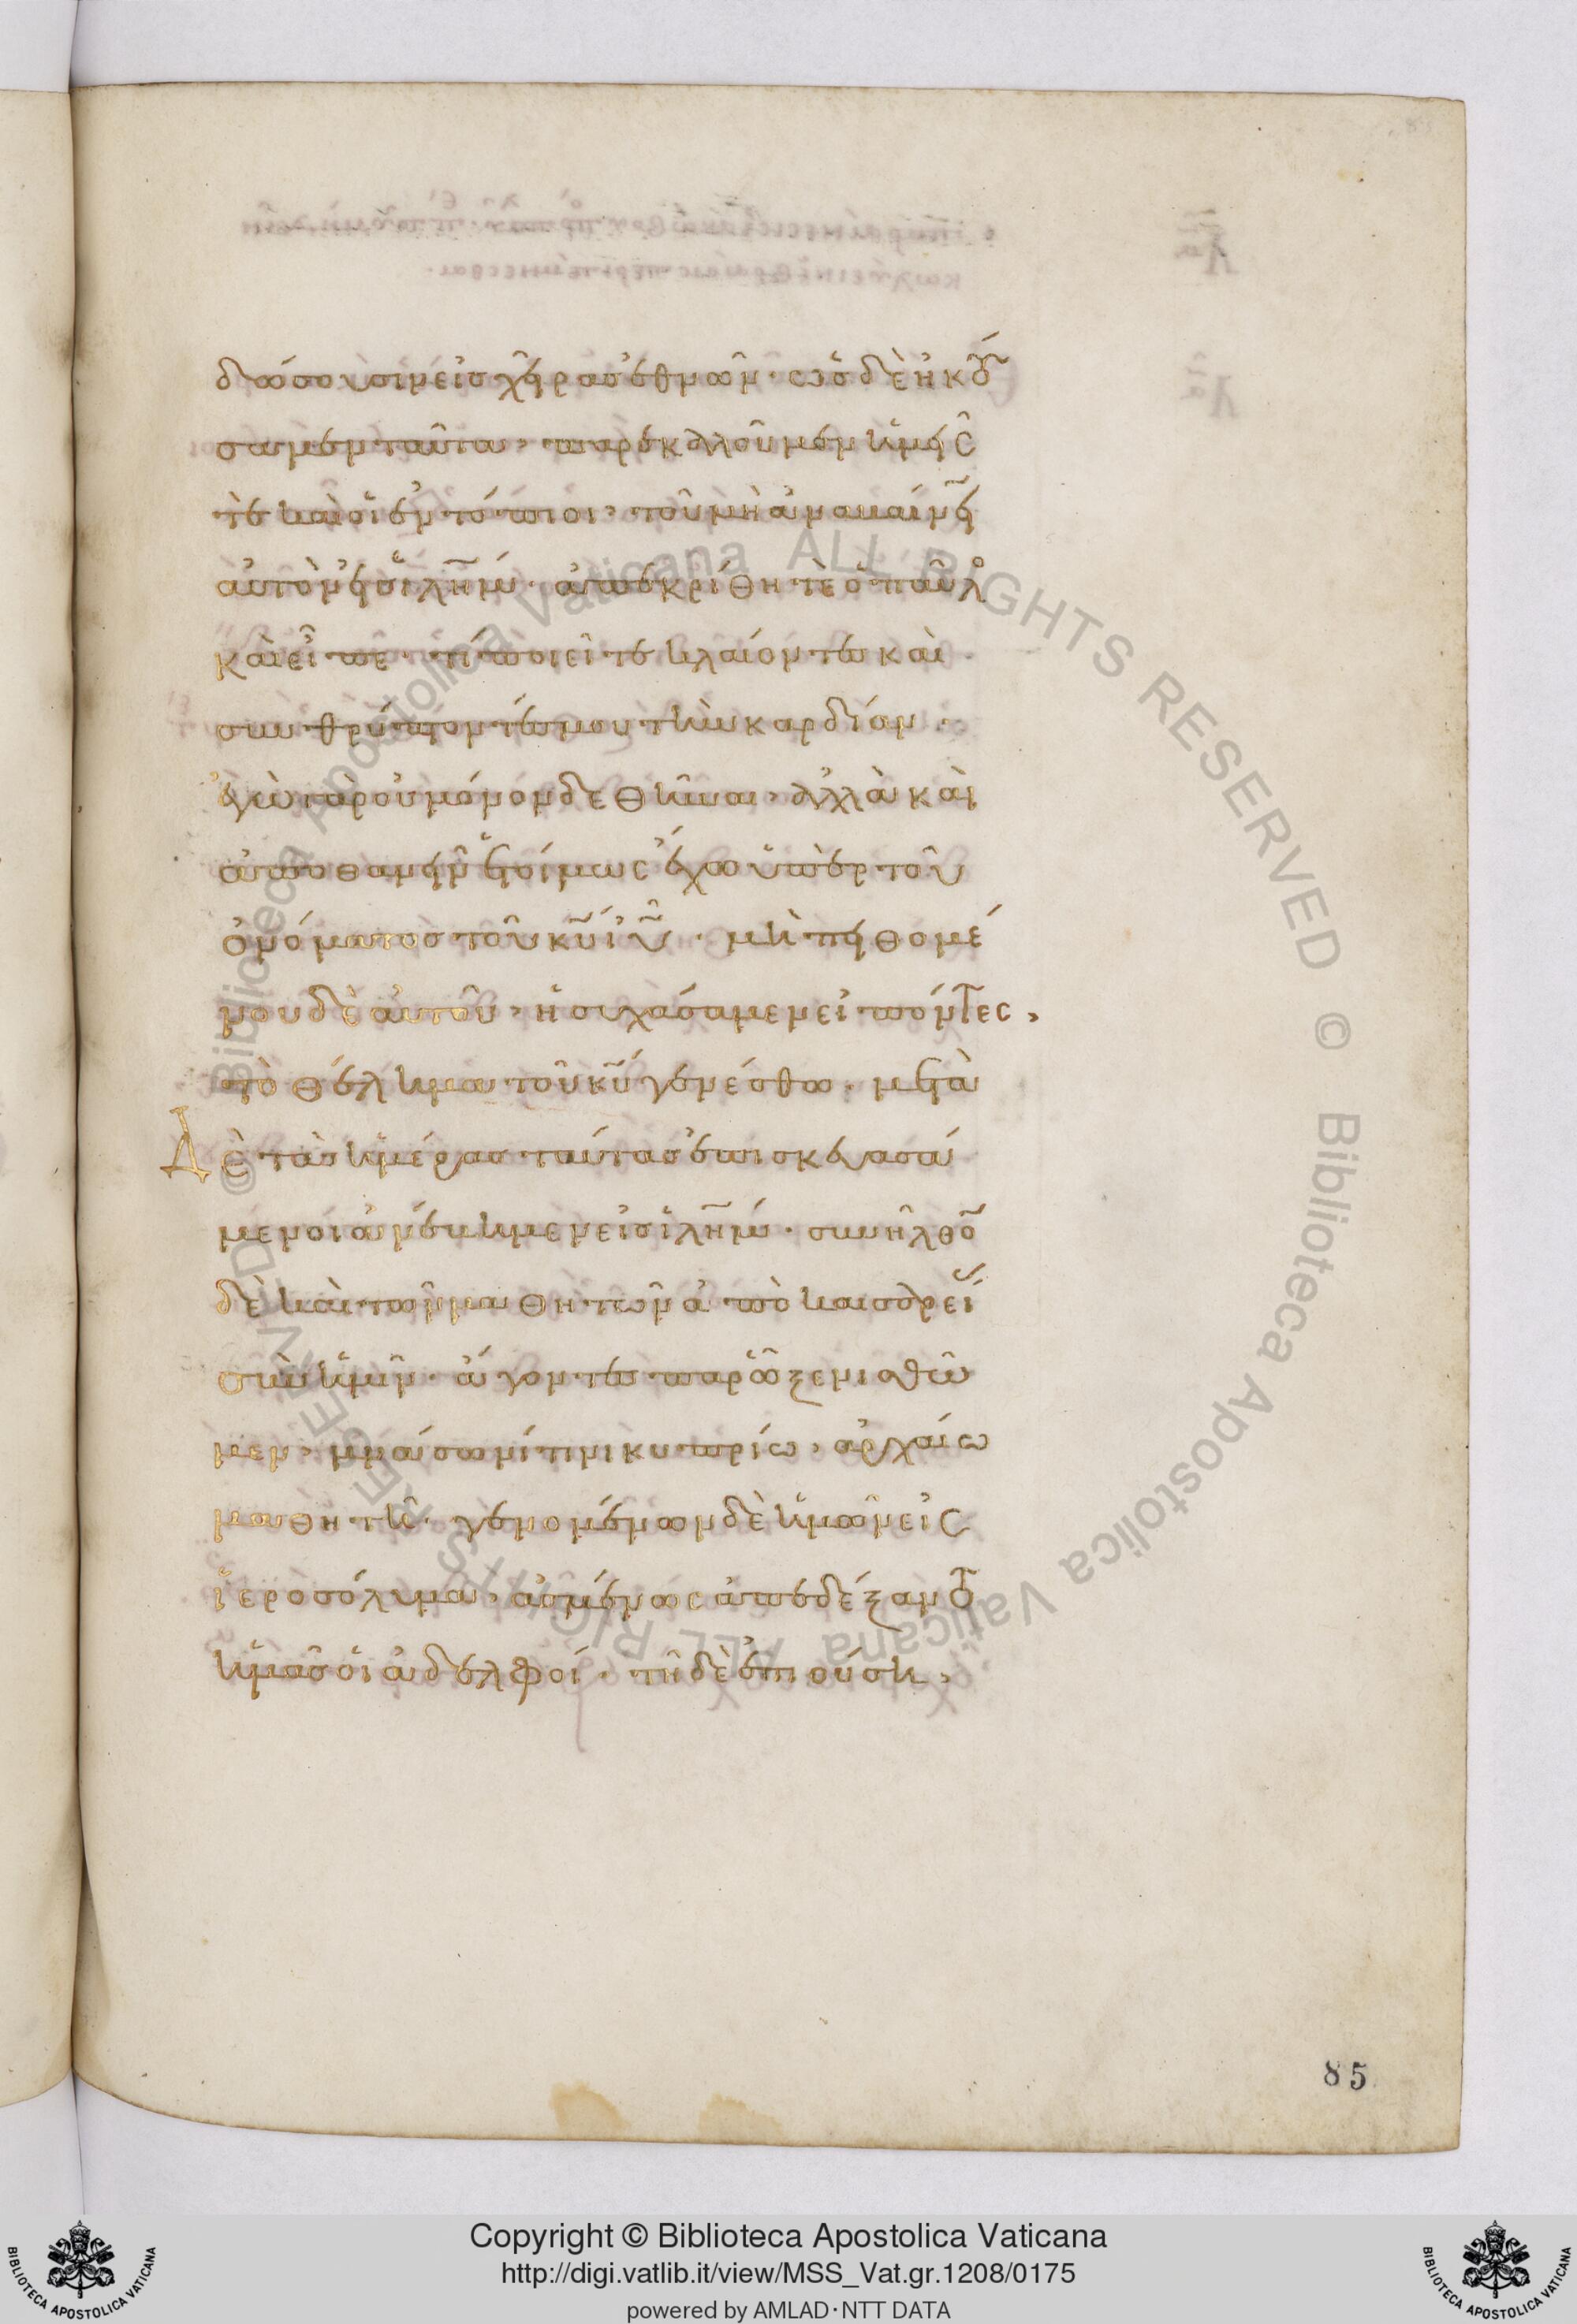 δώσουσιν εἰς χεῖρας ἐθνῶν· ὡς δὲ ἠκού
σαμεν ταῦτα, παρεκαλοῦμεν ἡμεῖς
τὲ καὶ οἱ ἐντόπιοι, τοῦ μὴ ἀναβαίνειν
αὐτὸν εἰς ἱλῆμ· ἀπεκρίθη τὲ ὁ παῦλο
καὶ εἶπε· τί ποιεῖτε κλαίοντες καὶ
συνθρύπτοντές μου τὴν καρδίαν·
ἐγὼ γὰρ οὐ μόνον δεθῆναι, ἀλλὰ καὶ
ἀποθανεῖν ἑτοίμως ἔχω ὑπὲρ τοῦ
ὀνόματος τοῦ κυ ἰυ· μὴ πειθομέ
νου δὲ αὐτοῦ, ἡσυχάσαμεν εἰπόντες,
τὸ θέλημα τοῦ κυ γενέσθω· μετὰ
Δὲ τὰς ἡμέρας ταύτας ἐπισκευασά
μενοι ἀνέβημεν εἰς ἱλῆμ· συνῆλθον
δὲ καὶ τῶν μαθητῶν ἀπὸ καισαρεί
σὺν ἡμῖν· ἄγοντες παρ' ὧ ξενισθῶ
μεν, μνάσωνί τινι κυπρίω, ἀρχαίω
μαθητῆ· γενομένων δὲ ἡμῶν εἰς
ἱεροσόλυμα, ἀσμένως ἀπεδέξαντο
ἡμᾶς οἱ ἀδελφοί· τῆ δὲ ἐπιούση,
85
© Biblioteca Apostolica Vaticana ALL RIGHTS RESERVED © Biblioteca Apostolica Vaticana ALL RIGHTS RESERVED
Copyright © Biblioteca Apostolica Vaticana
http://digi.vatlib.it/view/MSS_Vat.gr.1208/0175
powered by AMLAD·NTT DATA
BIBLIOTECA APOSTOLICA VATICANA
BIBLIOTECA APOSTOLICA VATICANA